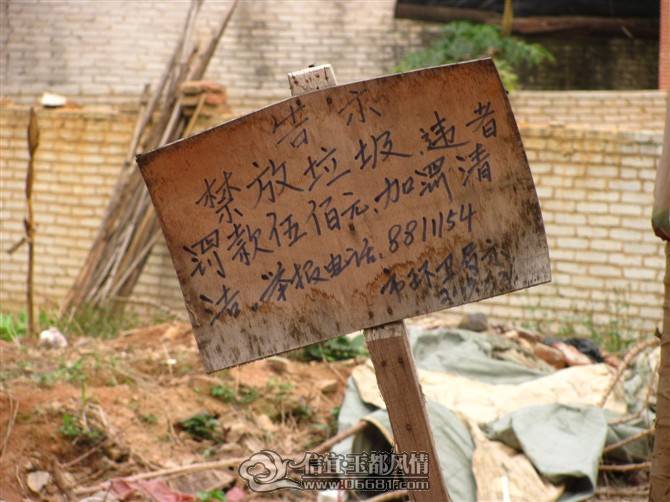 告示
禁放垃圾.违者
罚款伍佰元、加罚清
洁.举报电话.8811154
市环卫局示
信宜玉都风情
www.06681.com